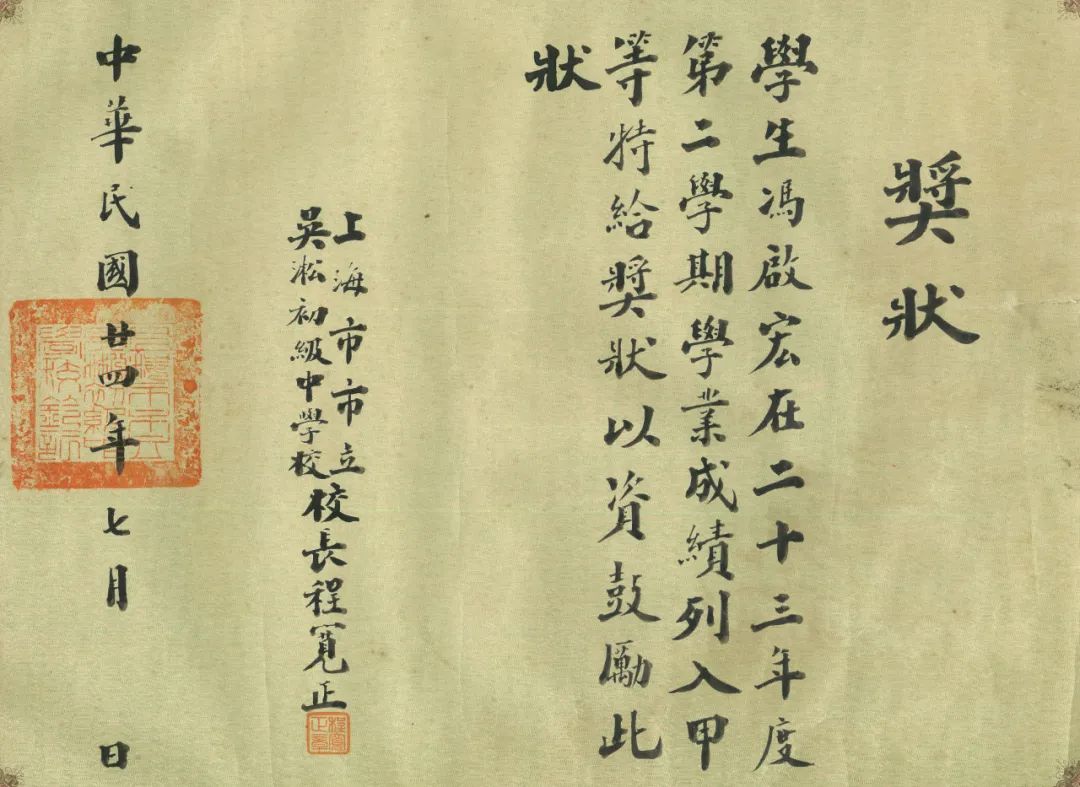 獎狀
學生馮啟宏在二十三年度
第二學期學業成績列入甲
等特給獎狀以資鼓勵此
狀
上海市市立
吳淞初級中學校
校長程寬正
中華民國廿四年七月 日